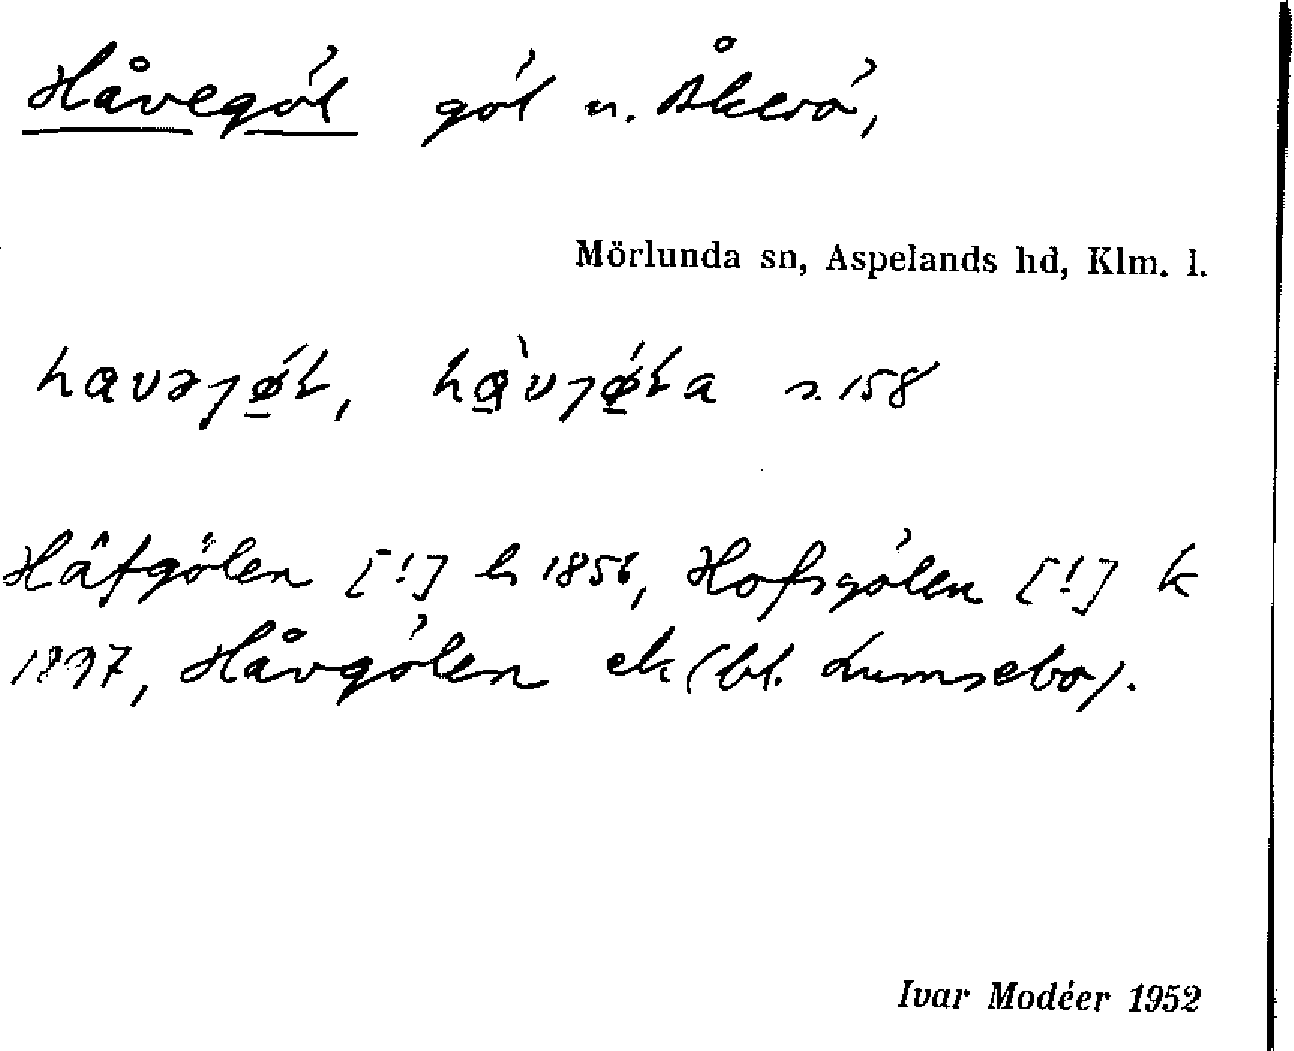 Håvegöl göl n. Åkerö,
Mörlunda sn, Aspelands hd, Klm. l.
s. 158
Håfgölen [!] h 1856, Hofsgölen [!] k
1897, Håvgölen ek (bl. Lumsebo).
Ivar Modéer 1952